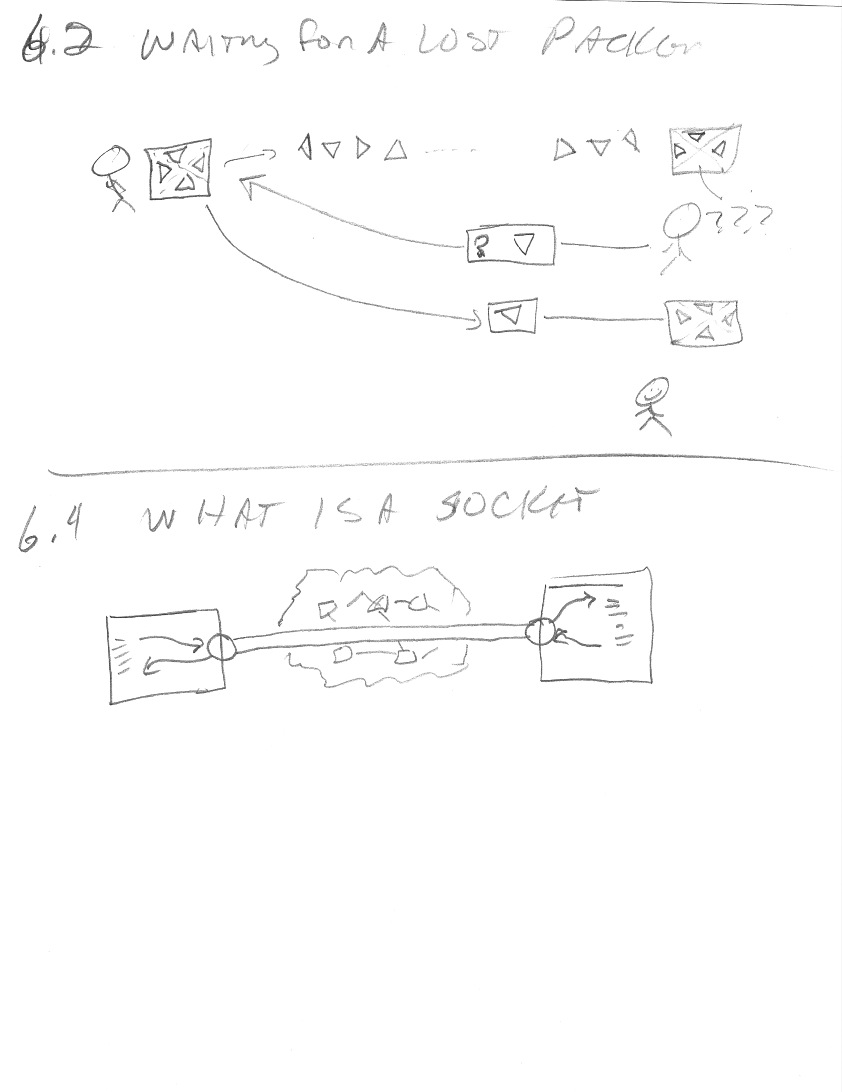 6.2 WAITING FOR A LOST PACKET
???
?
6.4 WHAT IS A SOCKET